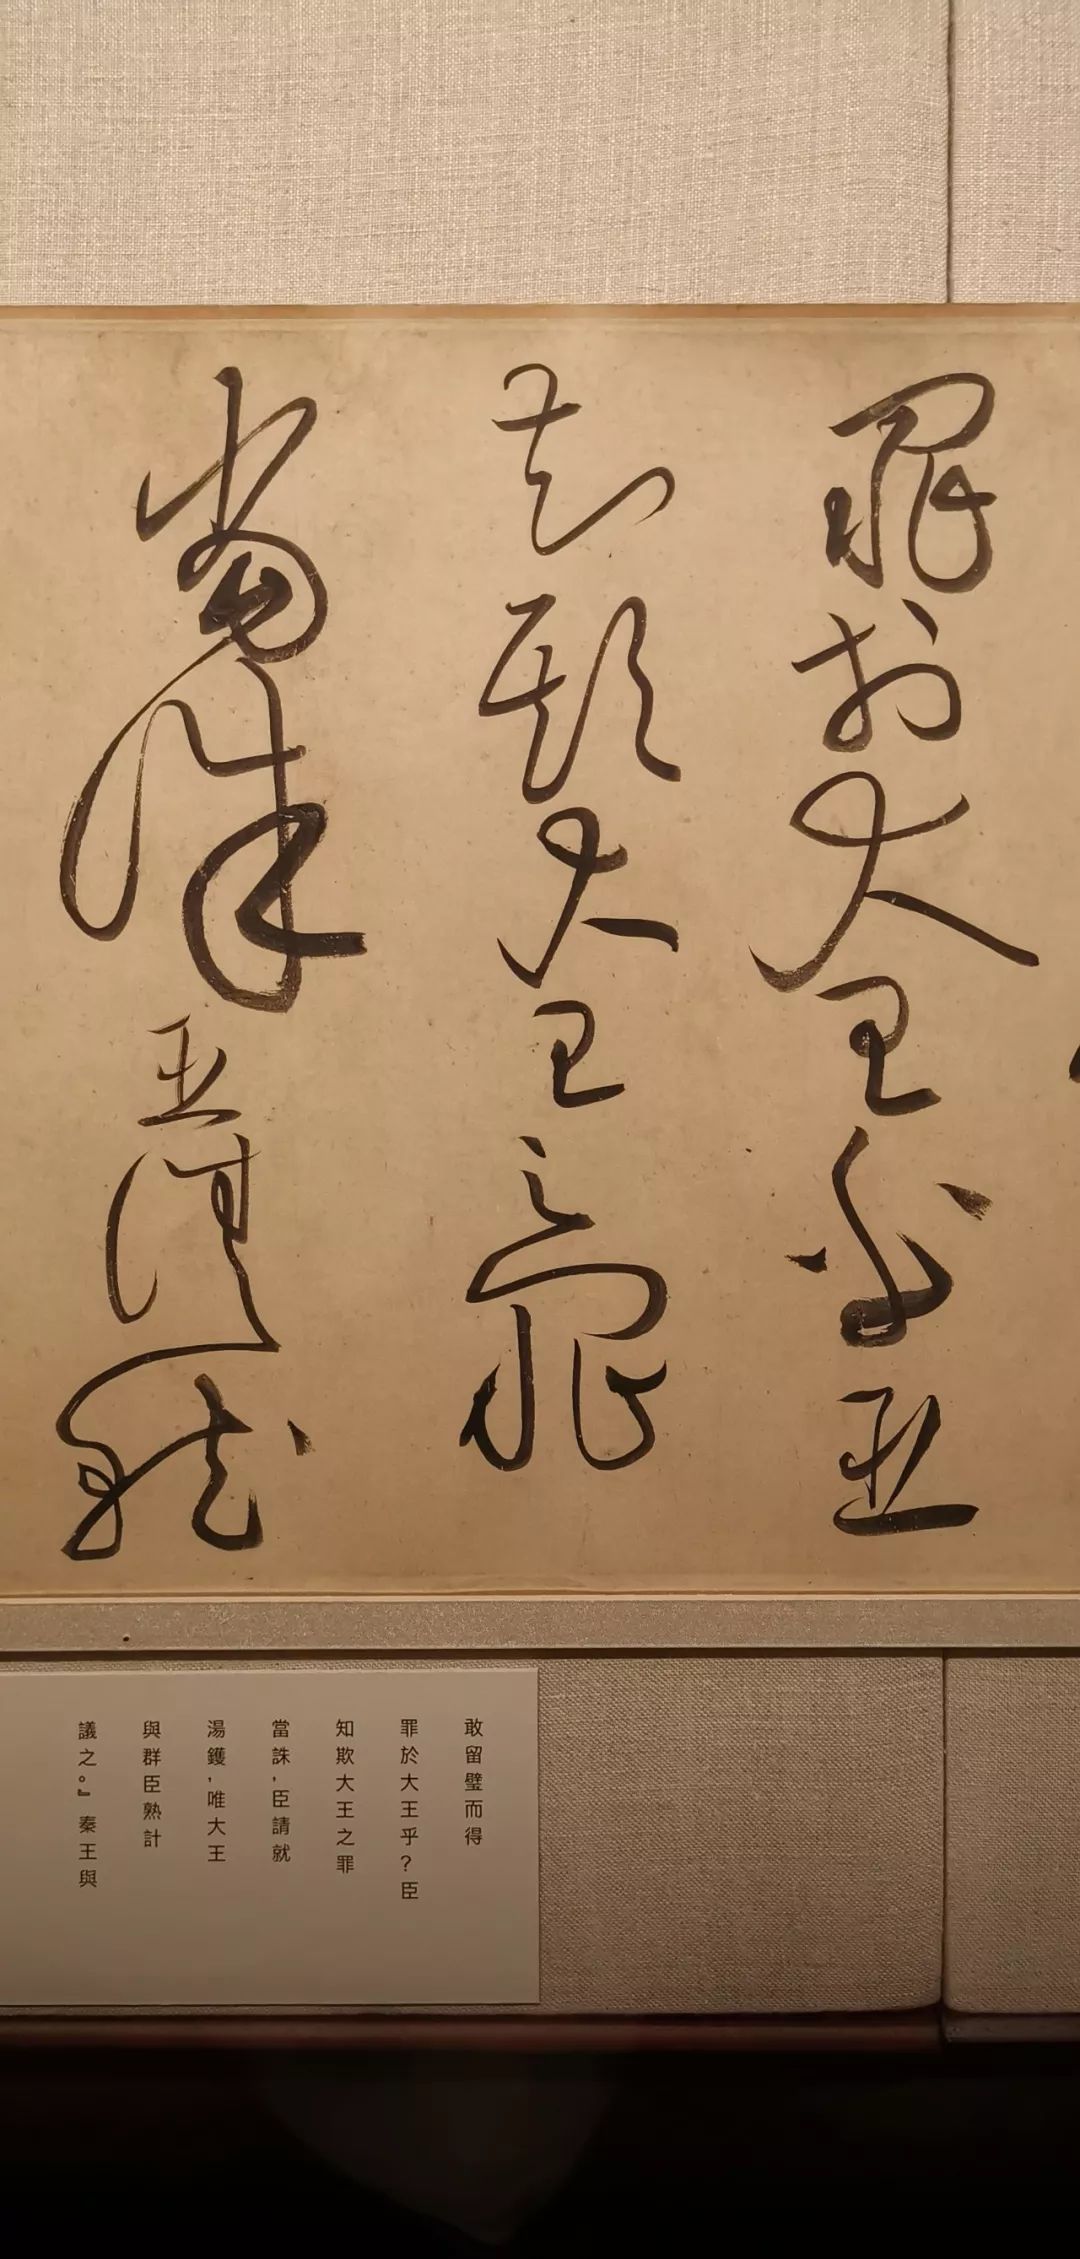 罪於大王乎臣
知欺大王之罪
當誅臣請就
敢留璧而得
罪於大王乎？臣
知欺大王之罪
當誅，臣請就
湯鑊，唯大王
與群臣熟計
議之。』秦王與